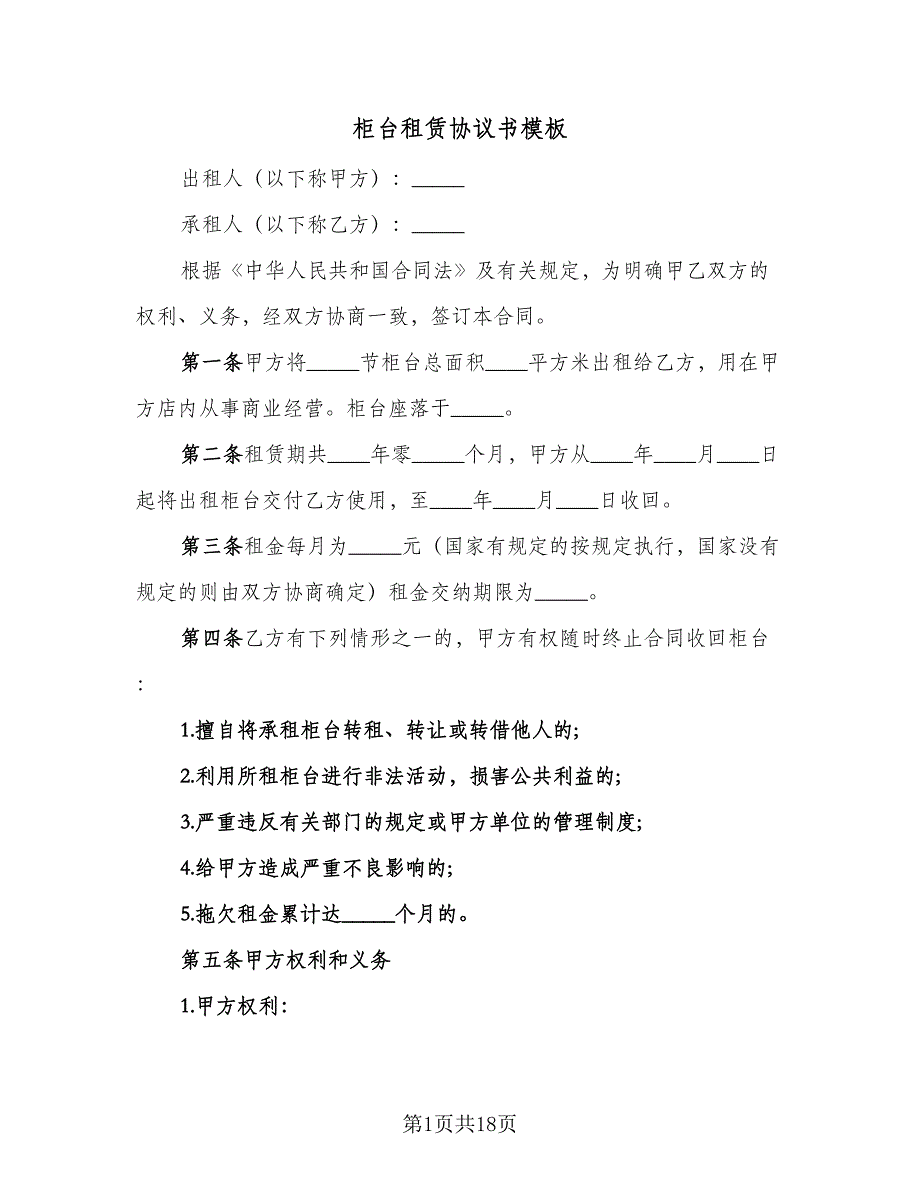 柜台租赁协议书模板
出租人（以下称甲方）：_____
承租人（以下称乙方）：_____
根据《中华人民共和国合同法》及有关规定，为明确甲乙双方的
权利、义务，经双方协商一致，签订本合同。
第一条甲方将_____节柜台总面积____平方米出租给乙方，用在甲
方店内从事商业经营。柜台座落于_____。
第二条租赁期共____年零_____个月，甲方从____年____月____日
起将出租柜台交付乙方使用，至____年____月____日收回。
第三条租金每月为_____元（国家有规定的按规定执行，国家没有
规定的则由双方协商确定）租金交纳期限为_____。
第四条乙方有下列情形之一的，甲方有权随时终止合同收回柜台
：
1.擅自将承租柜台转租、转让或转借他人的;
2.利用所租柜台进行非法活动，损害公共利益的;
3.严重违反有关部门的规定或甲方单位的管理制度;
4.给甲方造成严重不良影响的;
5.拖欠租金累计达_____个月的。
第五条甲方权利和义务
1.甲方权利：
第1页共18页